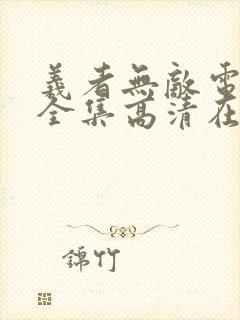 義者無敵電
全集高清在
錦竹